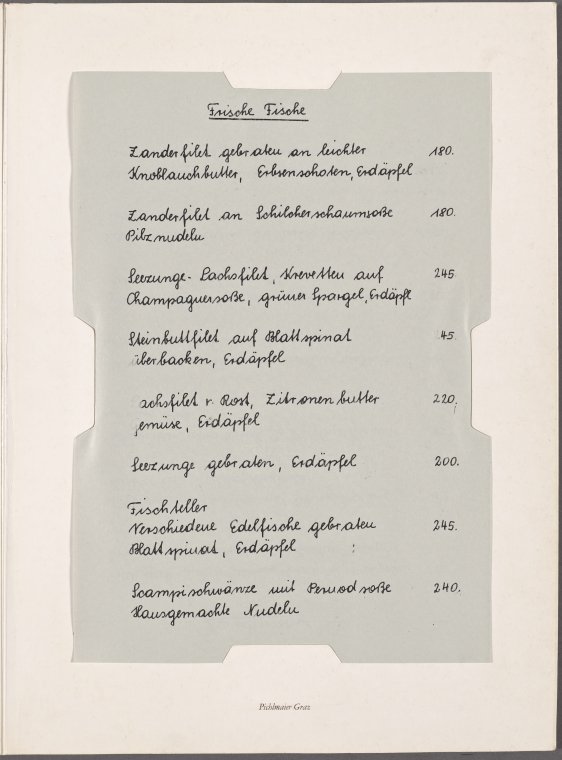 Frische Fische
Zanderfilet gebraten an leichter 180.
Knoblauchbutter, Erbsenschoten, Erdäpfel
Zanderfilet an Schilcherschaumsoße 180.
Pilznudeln
Seezunge- Lachsfilet, Krevetten auf 245
Champagnersoße, grüner Spargel, Erdäpfl
Steinbuttfilet auf Blattspinat 45.
überbacken, Erdäpfel
achsfilet v. Rost, Zitronenbutter 220,
emüse, Erdäpfel
Seezunge gebraten, Erdäpfel 200.
Fischteller
Verschiedene Edelfische gebraten 245.
Blattspinat, Erdäpfel
Scampischwänze mit Pernodsoße 240.
Hausgemachte Nudeln
Pichlmaier Graz